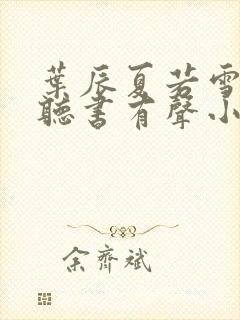 葉辰夏若雪
聽書有聲小
余齊斌